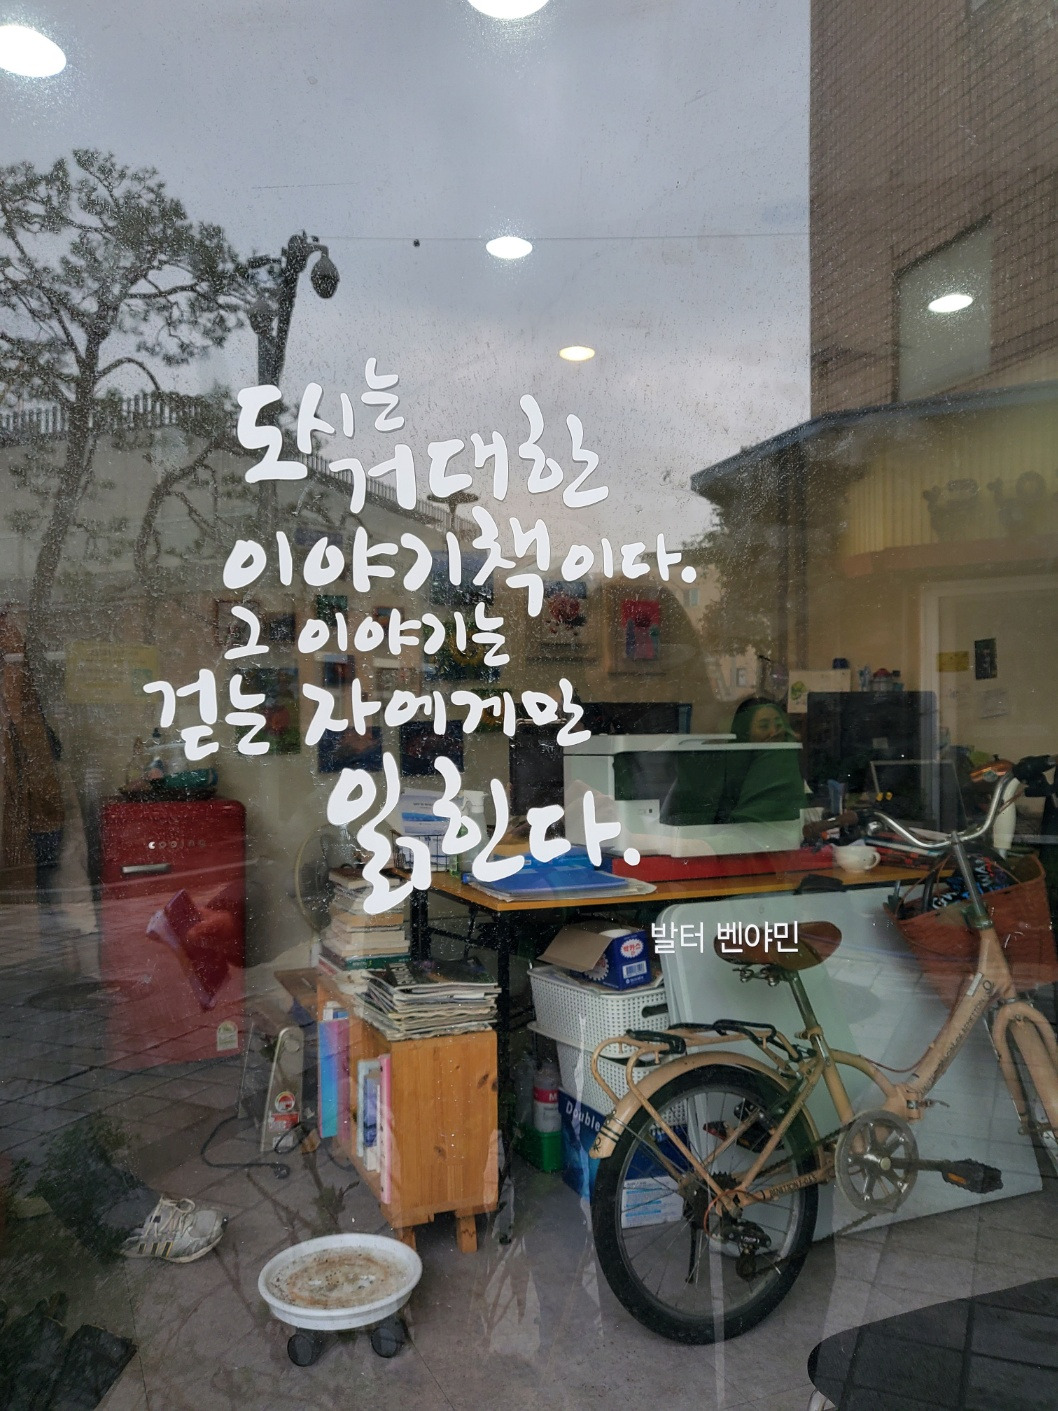 도시는
거대한
이야기책이다.
그 이야기는
걷는 자에게만
읽힌다.
발터 벤야민
Double